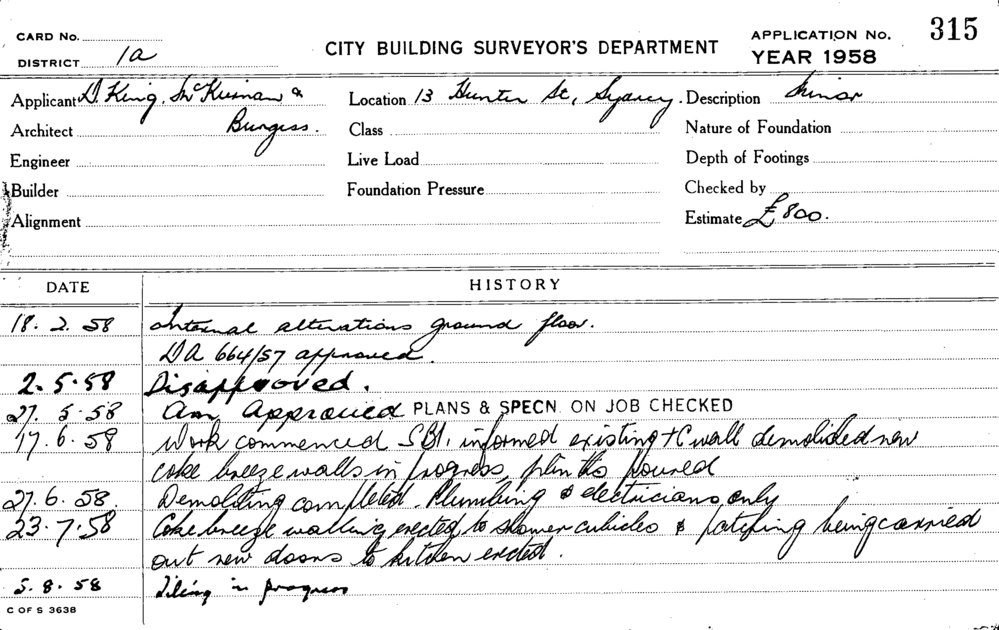 CARD No.
DISTRICT 1a
CITY BUILDING SURVEYOR'S DEPARTMENT
APPLICATION No. 315
YEAR 1958
Applicant D. King, McKiernan &
Location 13 Hunter St, Sydney.
Description Minor
Architect Burgess.
Class
Nature of Foundation
Engineer
Live Load
Depth of Footings
Builder
Foundation Pressure
Checked by
Alignment
Estimate £800.
DATE HISTORY
18. 2. 58 Internal alterations ground floor.
DA 664/57 approved.
2. 5. 58 Disapproved.
27. 5. 58 Am Approved PLANS & SPECN. ON JOB CHECKED
17. 6. 58 Work commenced SBI. informed existing TC wall demolished new
coke breeze walls in progress, plinths poured
27. 6. 58. Demoliting completed. Plumbing & electricians only
23. 7. 58 Coke breeze walling erected to shower cubicles & patching being carried
out new doors to kitchen erected.
5. 8. 58 Tiling in progress
C OF S 3638